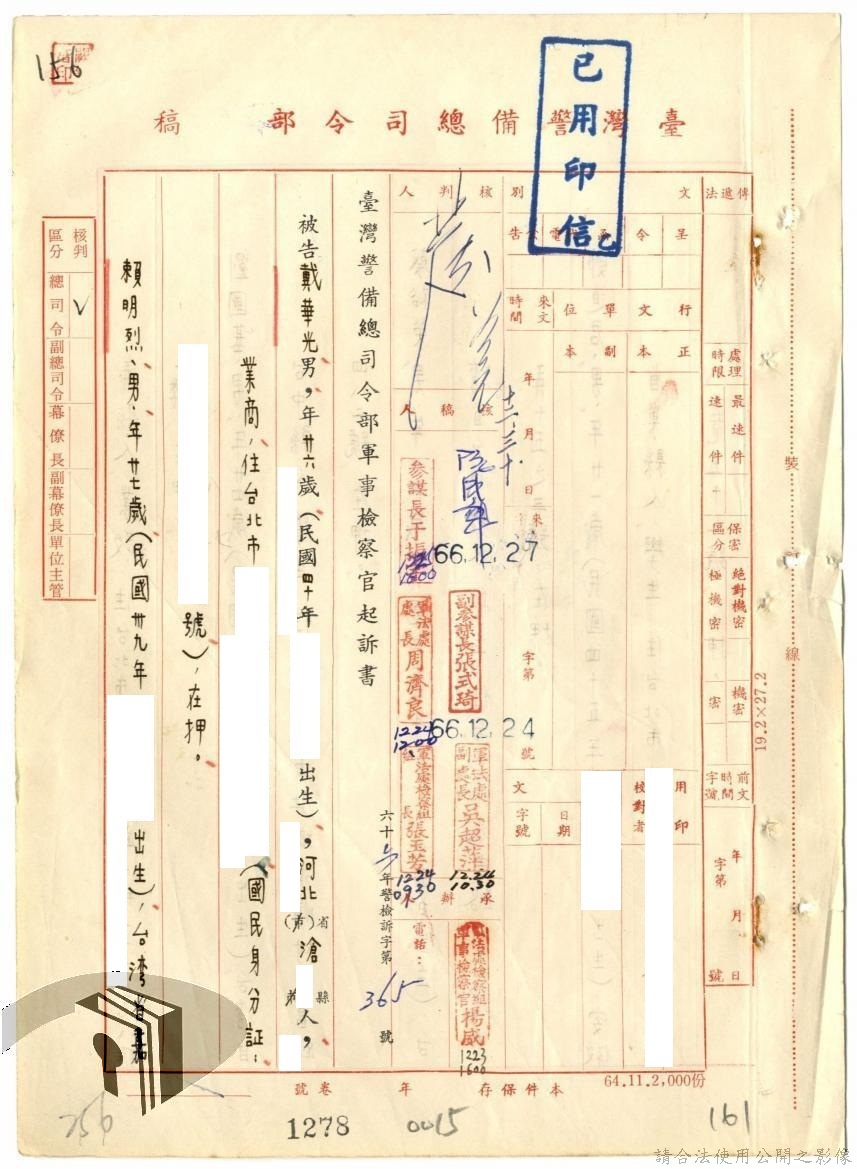 156
臺灣警備總司令部 稿
已用印信
傳遞法
處理時限
最速件
速件
保密區分
絕對機密
極機密
機密
密
前文時間字號
年 月 日
字第 號
文別
呈
令
電
告
行文單位
正本
副本
來文時間
年 月 日
字第 號
用印
校對者
日期
文 字號
核判人
核稿人
十二、三十
參謀長于振
66.12.27
副參謀長張式琦
軍法處處長周濟良
1224
1200
66.12.24
軍法處副處長吳超萍
12.24
10.30
軍法處檢察組組長張玉芳
1224
0930
承辦人
電話：
軍法處檢察組軍事檢察官楊威
1223
1600
臺灣警備總司令部軍事檢察官起訴書
六十六年警檢訴字第365號
被告戴華光男，年廿六歲（民國四十年 出生），河北省滄縣人，
業商，住台北市 （國民身分証：
號），在押。
賴明烈、男、年廿七歲（民國卅九年 出生），台灣省嘉
核判區分
總司令 ✓
副總司令
幕僚長
副幕僚長
單位主管
裝訂線
19.2×27.2
64.11.2,000份
本件保存 年 卷 號
256
1278
0015
161
請合法使用公開之影像